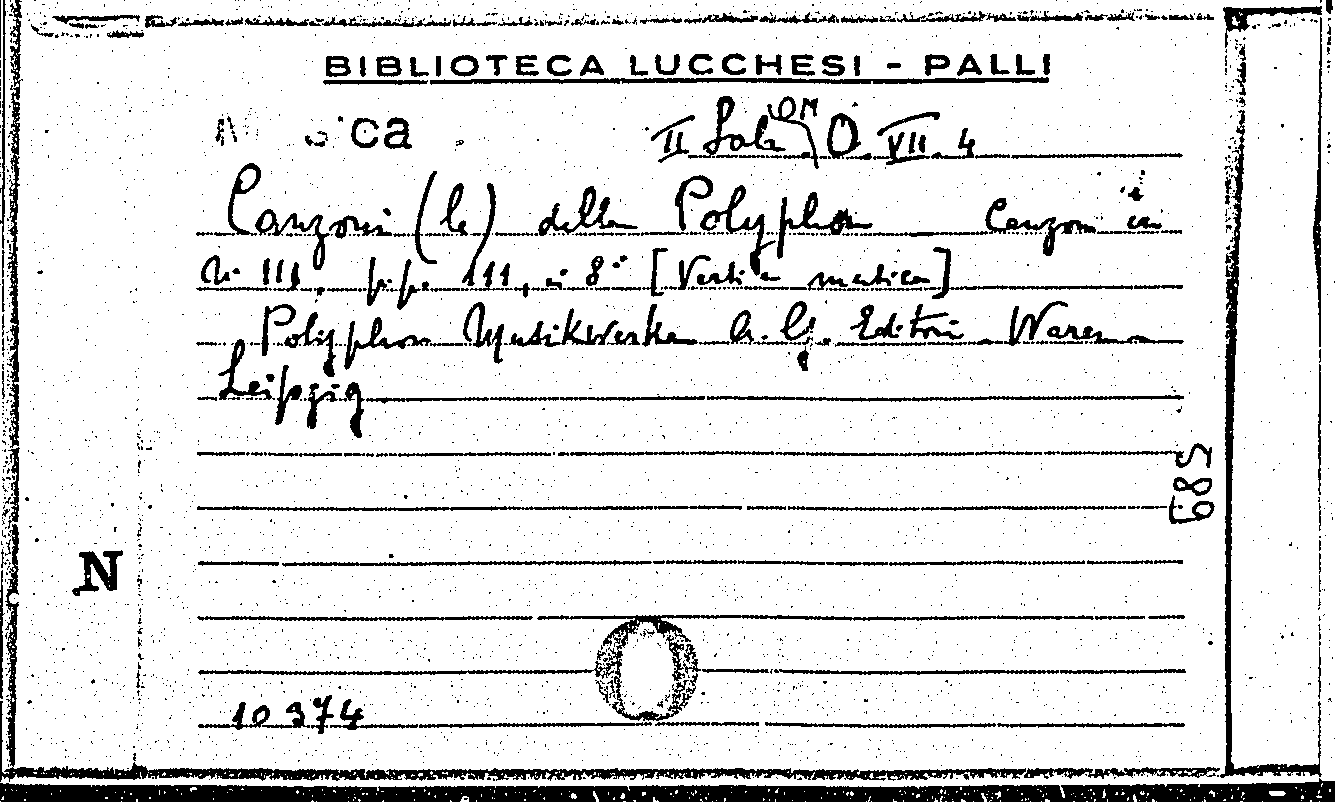 BIBLIOTECA LUCCHESI - PALLI
ca
II Sala OM O. VII. 4
Canzoni (le) della Polyphon Canzoni in
N. III. pp. 111, in 8° [Versi e musica]
Polyphon Musikwerke A. G. Editori Waren
Leipzig
689
N
10374